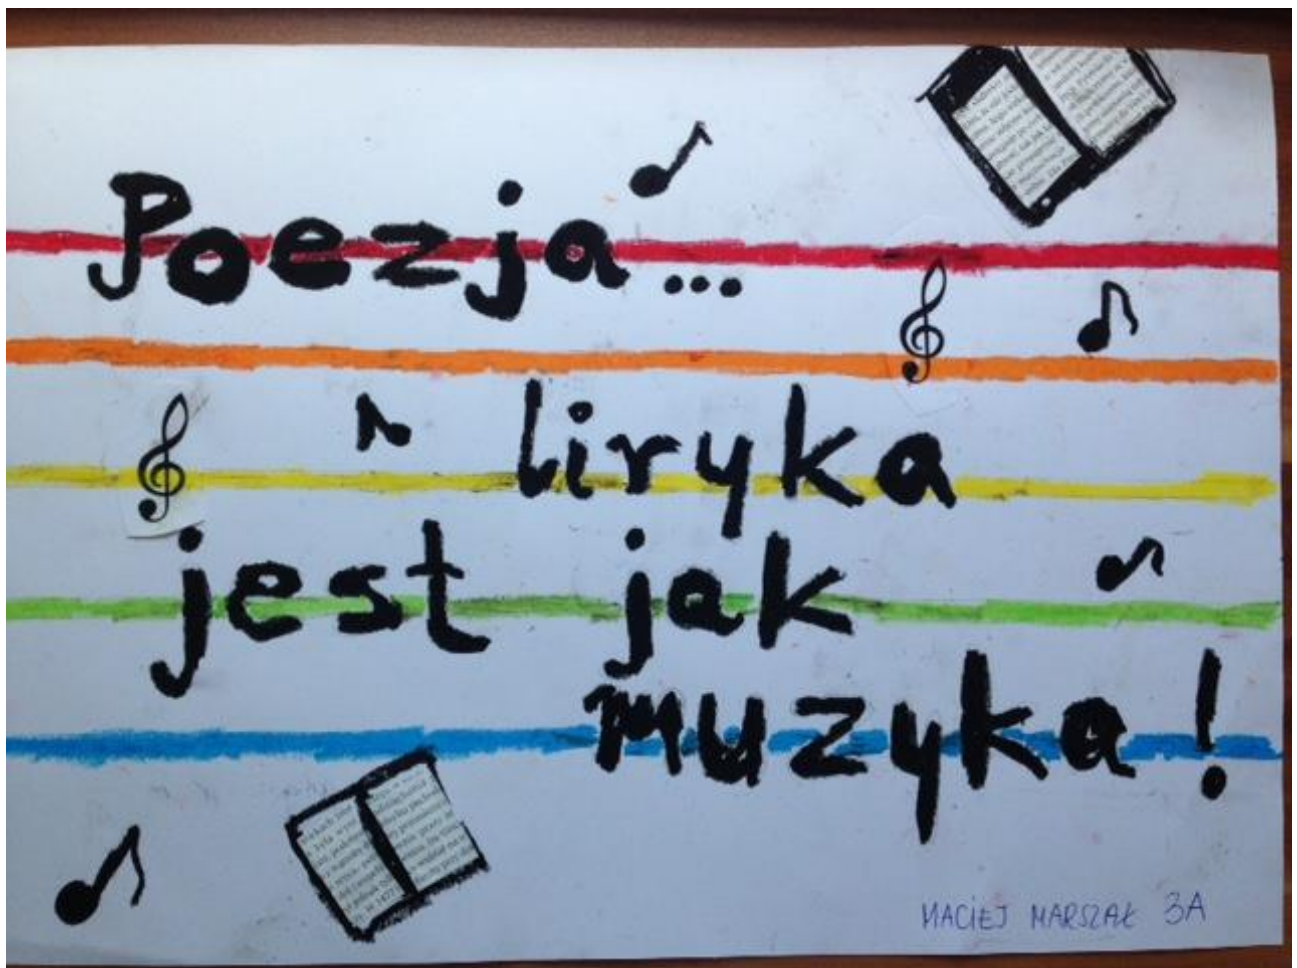 Poezja...
liryka
jest jak
muzyka!
MACIEJ MARSZAŁ 3A